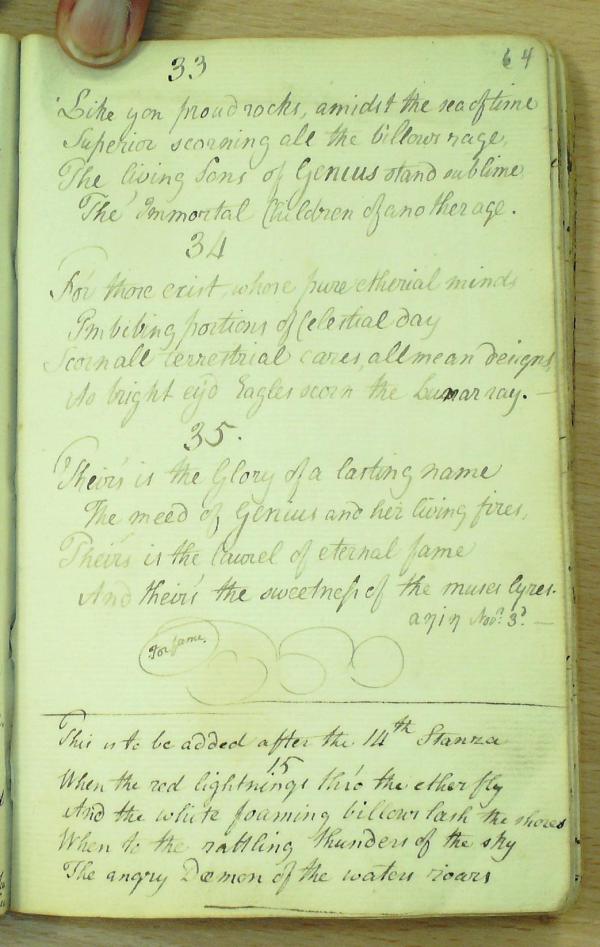 64
33
Like yon proud rocks, amidst the sea of time
Superior scorning all the billows rage,
The living Sons of Genius stand sublime
The Immortal Children of another age.
34
For those exist, whose pure etherial minds
Imbibing portions of Celestial day
Scorn all terrestrial cares, all mean designs,
As bright ey'd Eagles scorn the Lunar ray. —
35.
Their's is the Glory of a lasting name
The meed of Genius and her living fires,
Their's is the laurel of eternal fame
And their's the sweetness of the muses lyres.
Novr. 3d. —
For fame.
This is to be added after the 14th Stanza
15
When the red lightnings thro the ether fly
And the white foaming billows lash the shores
When to the rattling thunders of the sky
The angry Dæmon of the waters roars